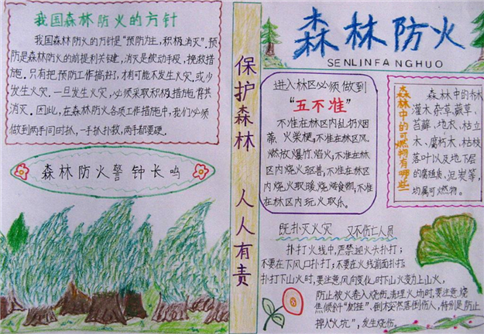 我国森林防火的方针
我国森林防火的方针是“预防为主，积极消灭”。预
防是森林防火的前提和关键，消灭是被动手段，挽救措
施。只有把预防工作搞好，才有可能不发生火灾或少
发生火灾。一旦发生火灾，必须采取积极措施，消灭
消灭。因此，在森林防火各项工作措施中，我们必须
做到两手同时抓，一手抓扑救，两手都要硬。
森林防火警钟长鸣
保护森林 人人有责
森林防火
SENLINFANGHUO
进入林区必须做到
“五不准”
不准在林区内乱扔烟
蒂、火柴梗，不准在林区
燃放爆竹、焰火，不准在林区
内烧火
内烧火取暖、烧烤食物，不准
在林区内玩火取乐。
森林中的可燃物有哪些
森林中的乔木
灌木、杂草、蕨草、
苔藓、地衣、枯立
木、腐朽木、枯枝
落叶以及地下层
的腐殖质、泥炭等，
均属可燃物。
既扑灭火灾 又不伤亡人员
扑打火线中，严禁迎火头扑打；
不要在下风口扑打；不要在火线前面扑打；
扑打下山火时，要注意风向变化，时下山火变为上山火，
防止被火卷入烧伤。清理火场时，要注意烧
焦倾斜“树挂”、倒木突然落倒伤人，特别是防止
掉入“火坑”，发生烧伤。